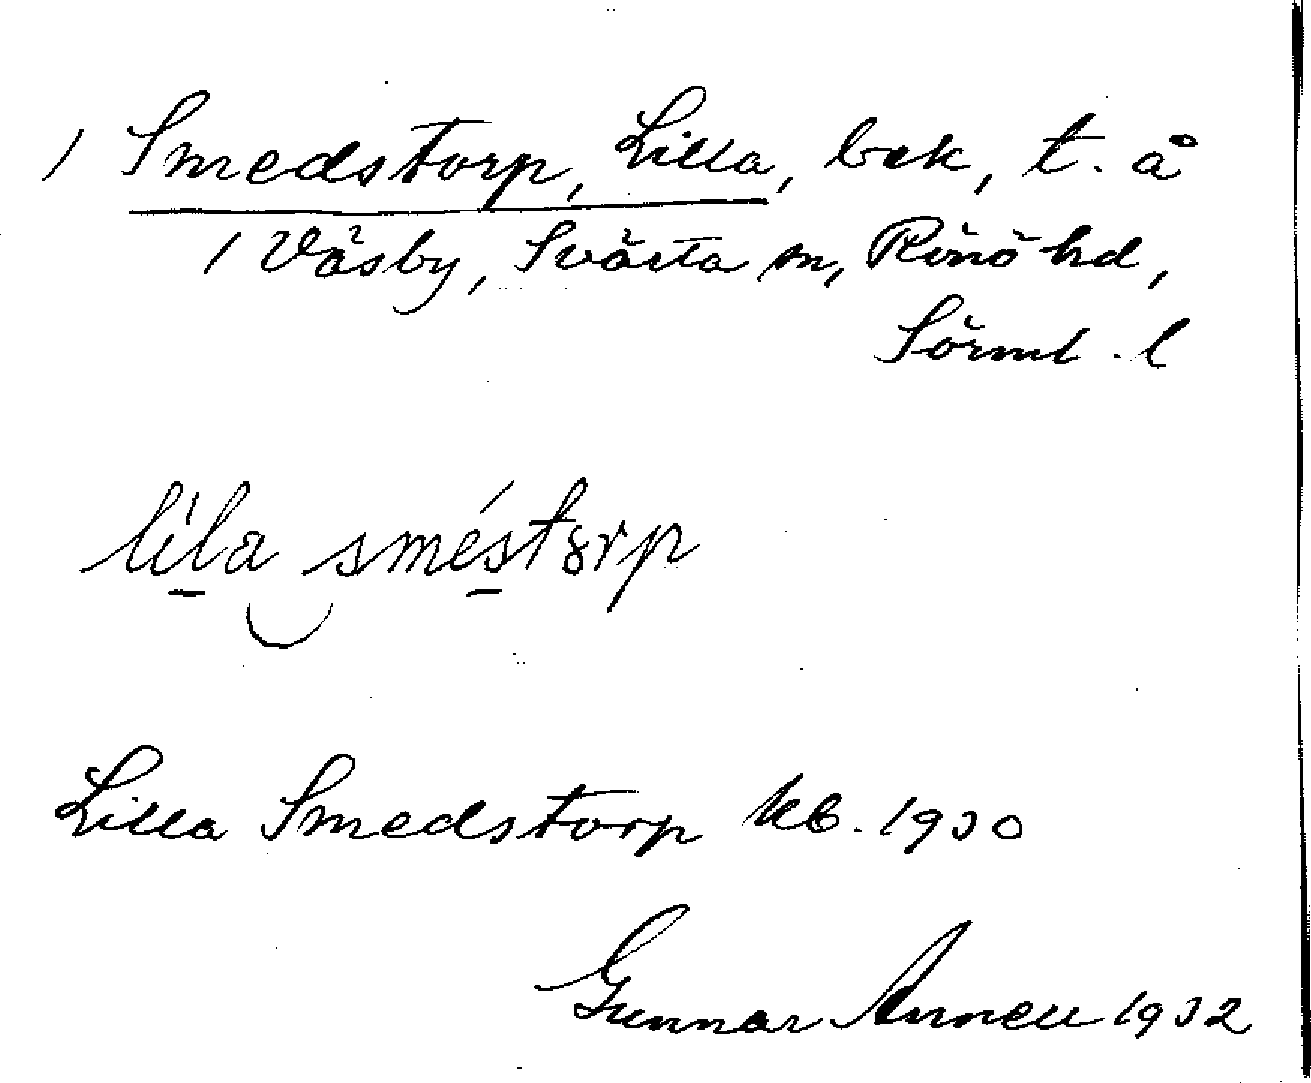 / Smedstorp, Lilla, bek, t. å
/ Väsby, Svärta sn, Rönö hd,
Sörml. l
lila sméstorp
Lilla Smedstorp kb. 1930
Gunnar 1932